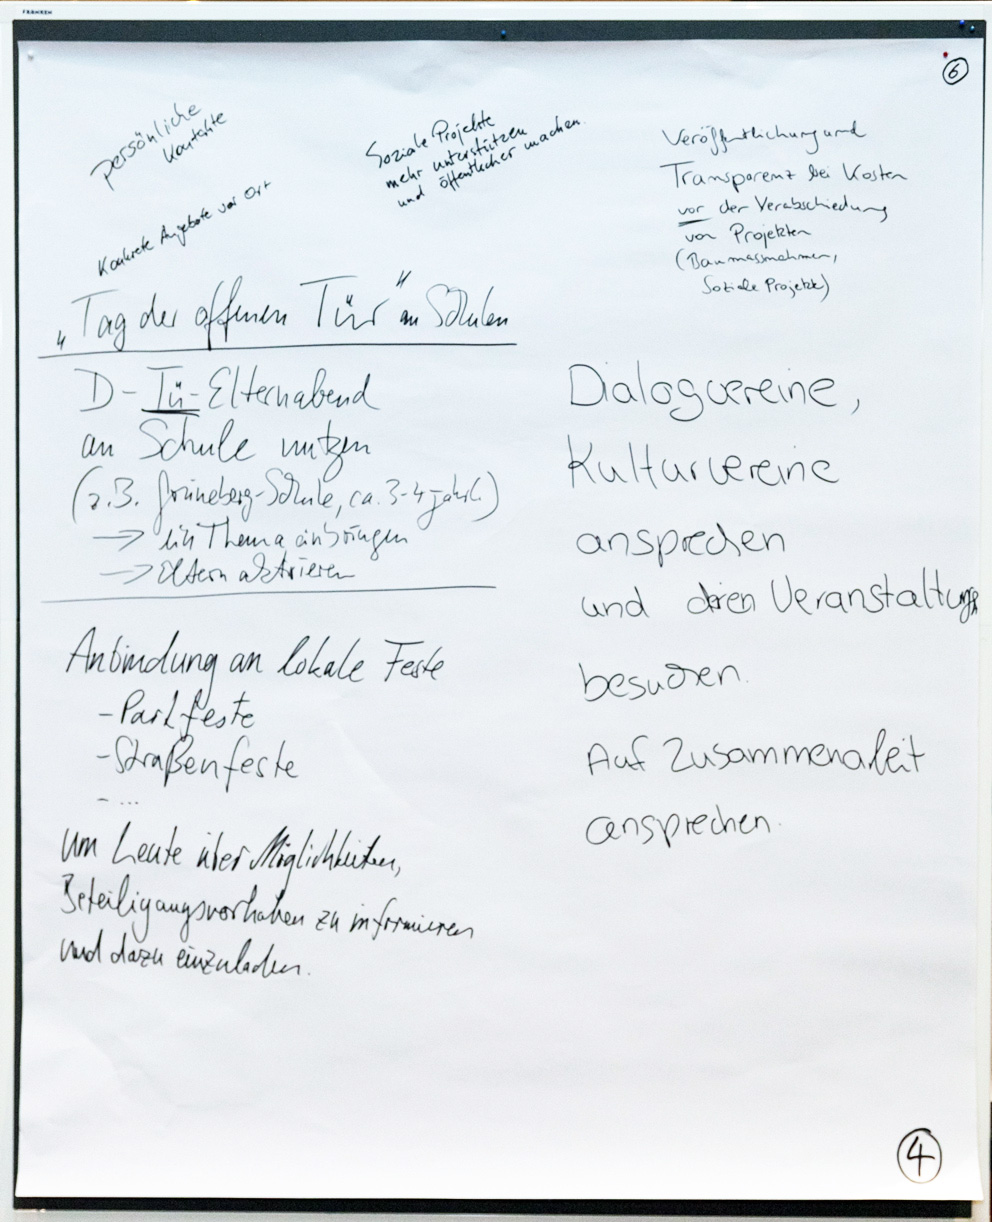 FRANKEN
6
persönliche
Kontakte
Konkrete Angebote vor Ort
Soziale Projekte
mehr unterstützen
und öffentlicher machen.
Veröffentlichung und
Transparenz bei Kosten
vor der Verabschiedung
von Projekten
(Baumassnahmen,
Soziale Projekte)
„Tag der offenen Tür" an Schulen
D-Tü-Elternabend
an Schule nutzen
(z.B. Grüneberg-Schule, ca. 3-4 jährl.)
→ ein Thema einbringen
→ Eltern aktivieren
Anbindung an lokale Feste
- Parkfeste
- Straßenfeste
- ...
um Leute über Möglichkeiten,
Beteiligungsvorhaben zu informieren
und dazu einzuladen.
Dialogvereine,
Kulturvereine
ansprechen
und deren Veranstaltung
besuchen.
Auf Zusammenarbeit
ansprechen.
4